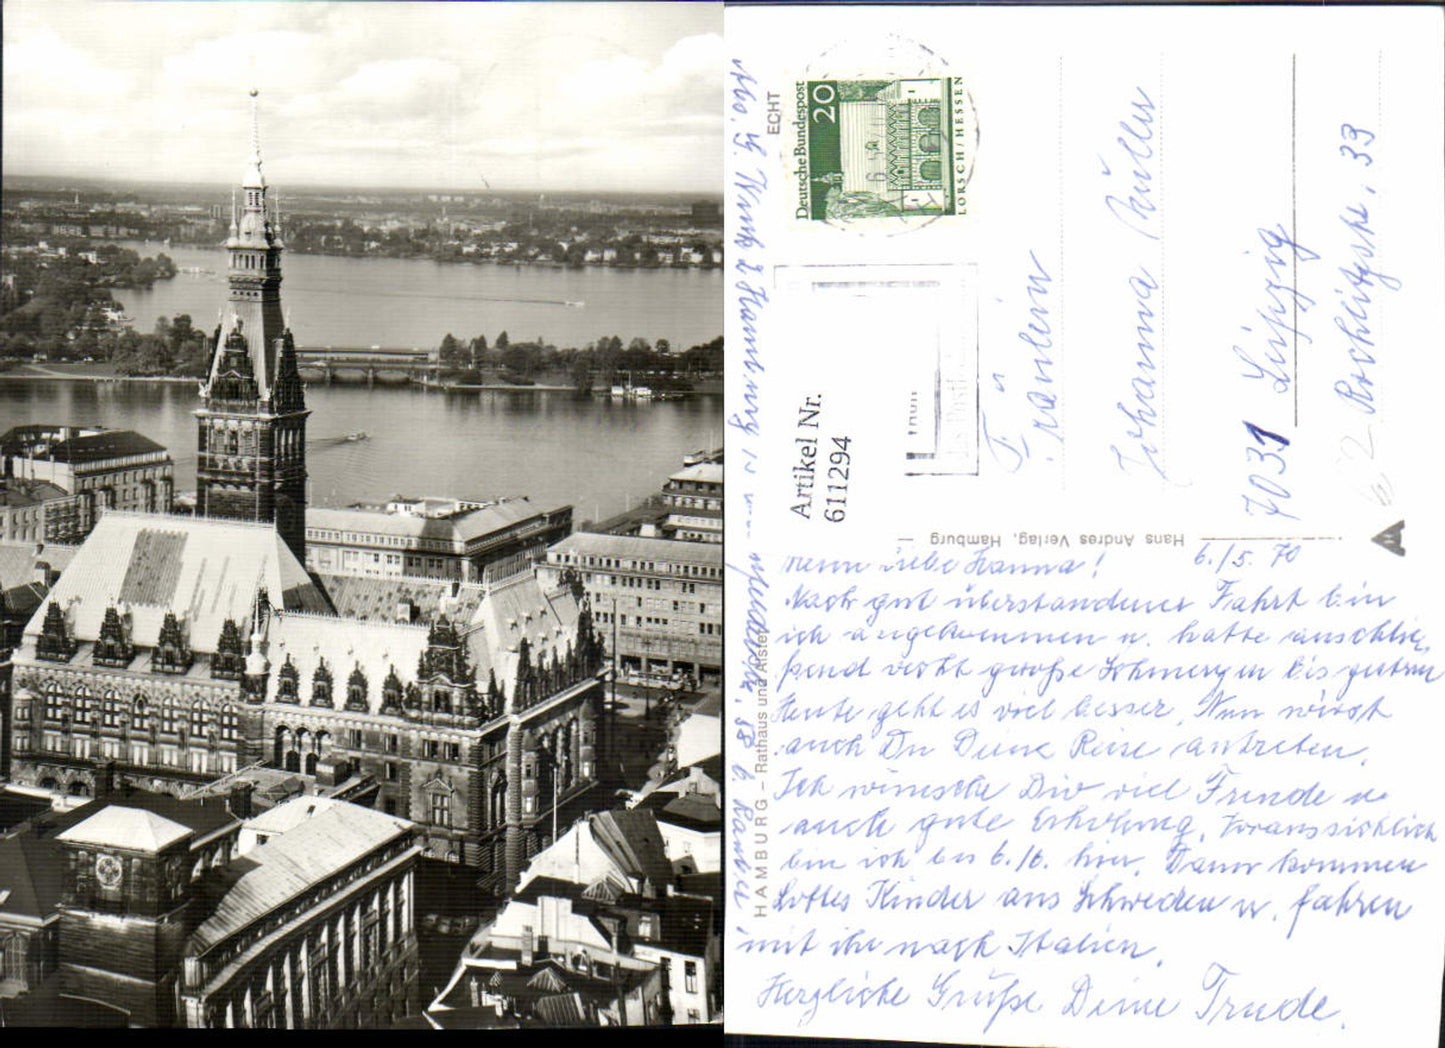 ECHT
Deutsche Bundespost
20
LORSCH/HESSEN
Artikel Nr.
611294
Fräulein
Johanna Müller
7031 Leipzig
Rochlitzstr. 33
Hans Andres Verlag, Hamburg
HAMBURG – Rathaus und Alster
Meine liebe Hanna! 6./5. 70
Nach gut überstandener Fahrt bin
ich angekommen u. hatte anschlie-
ßend recht große Schmerzen bis gestern
Heute geht es viel besser. Nun wirst
auch Du Deine Reise antreten.
Ich wünsche Dir viel Freude u.
auch gute Erholung. Voraussichtlich
bin ich bis 6./6. hier. Dann kommen
Lottes Kinder aus Schweden u. fahren
mit ihr nach Italien.
Herzliche Grüße Deine Trude.
2 Hamburg